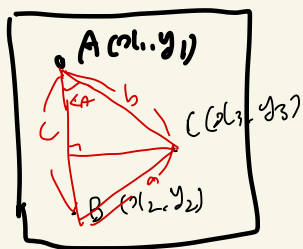 A(x₁,y₁)
∠A
b
c
C(x₃,y₃)
a
B(x₂,y₂)